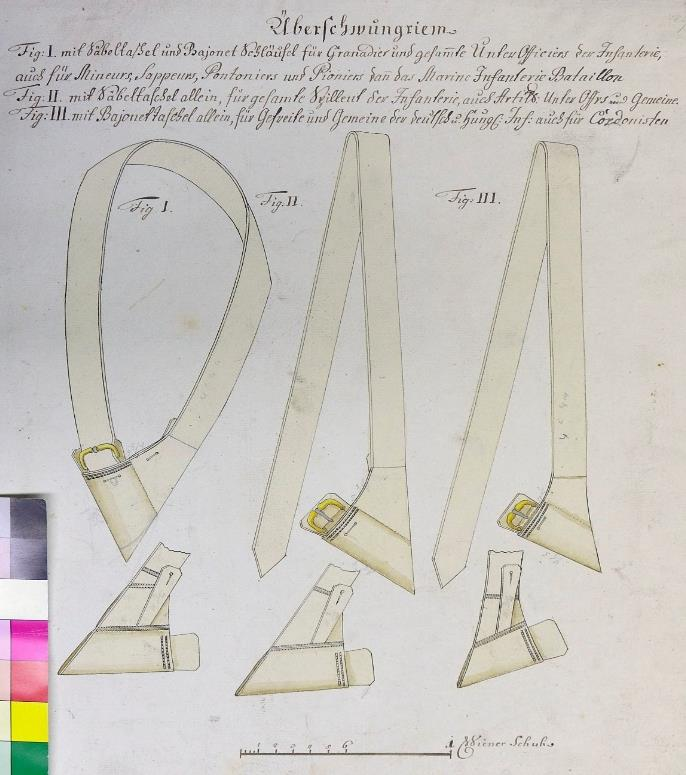 Überschwungriem
Fig: I. mit Säbeltaschel und Bajonet Schläufel für Granadier und gesam̄te Unter Officiers der Infanterie,
auch für Mineurs, Sappeurs, Pontoniers und Pioniers dañ das Marine Infanterie Bataillon
Fig. II. mit Säbeltaschel allein, für gesamte der Infanterie, auch Artill: Unter Offrs und Gemeine.
Fig: III. mit Bajonettaschel allein, für Gefreite und Gemeine der deutsch u. Hung: Inf: auch für Cordonisten
Fig I.
Fig. II.
Fig: III.
1 Wiener Schuh